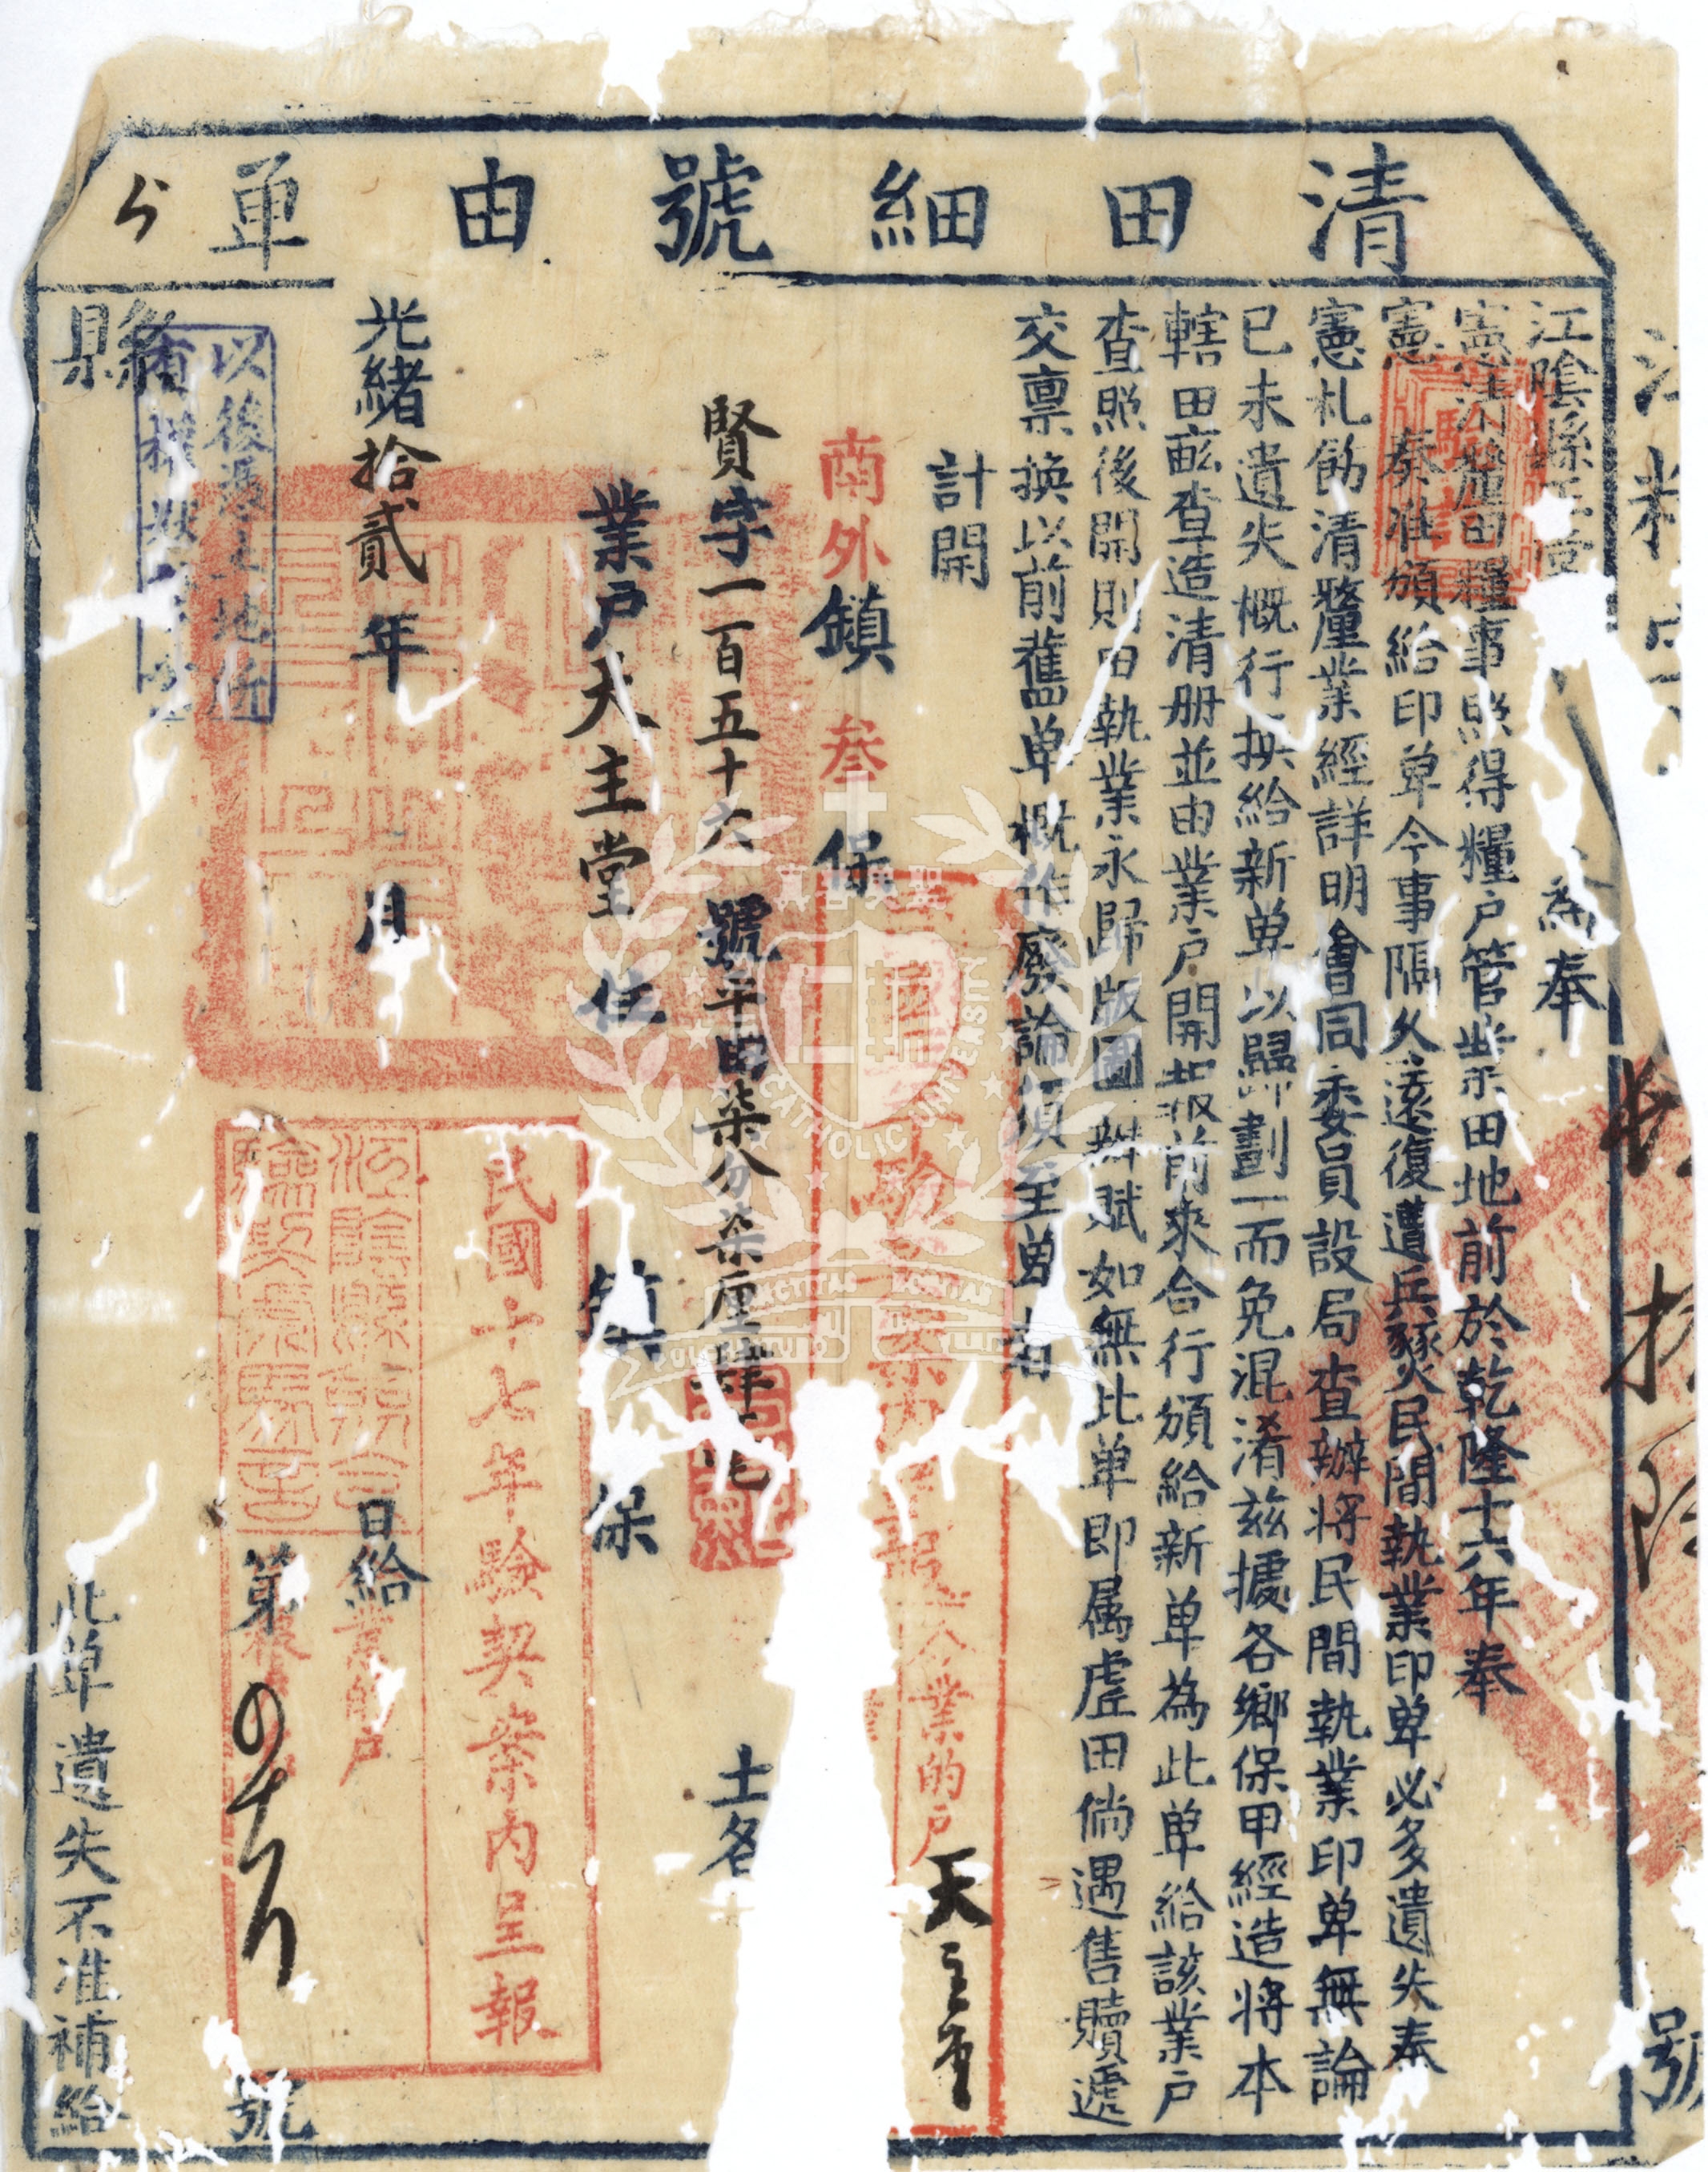 清田細號由單
江陰縣正堂 為奉
憲清釐田糧事照得糧戶管業田地前於乾隆十六年奉
憲 奏准頒給印單今事隔久遠復遭兵燹民間執業印單必多遺失奉
憲札飭清釐業經詳明會同委員設局查辦將民間執業印單無論
已未遺失概行換給新單以歸劃一而免混淆茲據各鄉保甲經造將本
轄田畝查造清册並由業戶開報前來合行頒給新單為此單給該業戶
查照後開則田執業永歸版圖辦賦如無此單即属虛田倘遇售贖遞
交稟換以前舊單概作廢論須至單者
計開
南外鎮叁保
賢字一百五十六號平田柒分柒厘肆毛 土名
業戶天主堂住 鎮 保
光緒拾貳年 月 日給
縣 第 號
此單遺失不准補給
驗訖
民國十七年驗契案內呈報
業的戶
今業的戶天主堂
以後憑之地所
有權
CATHOLIC UNIVERSITY
號